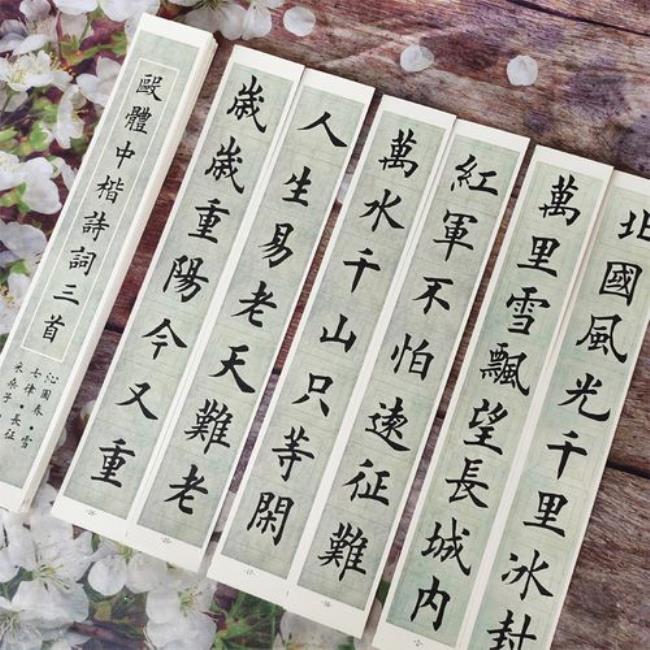 毆體中楷詩詞三首
沁園春·雪
七律·長征
采桑子·
北國風光千里冰封
萬里雪飄望長城内
紅軍不怕遠征難
萬水千山只等閑
人生易老天難老
歲歲重陽今又重